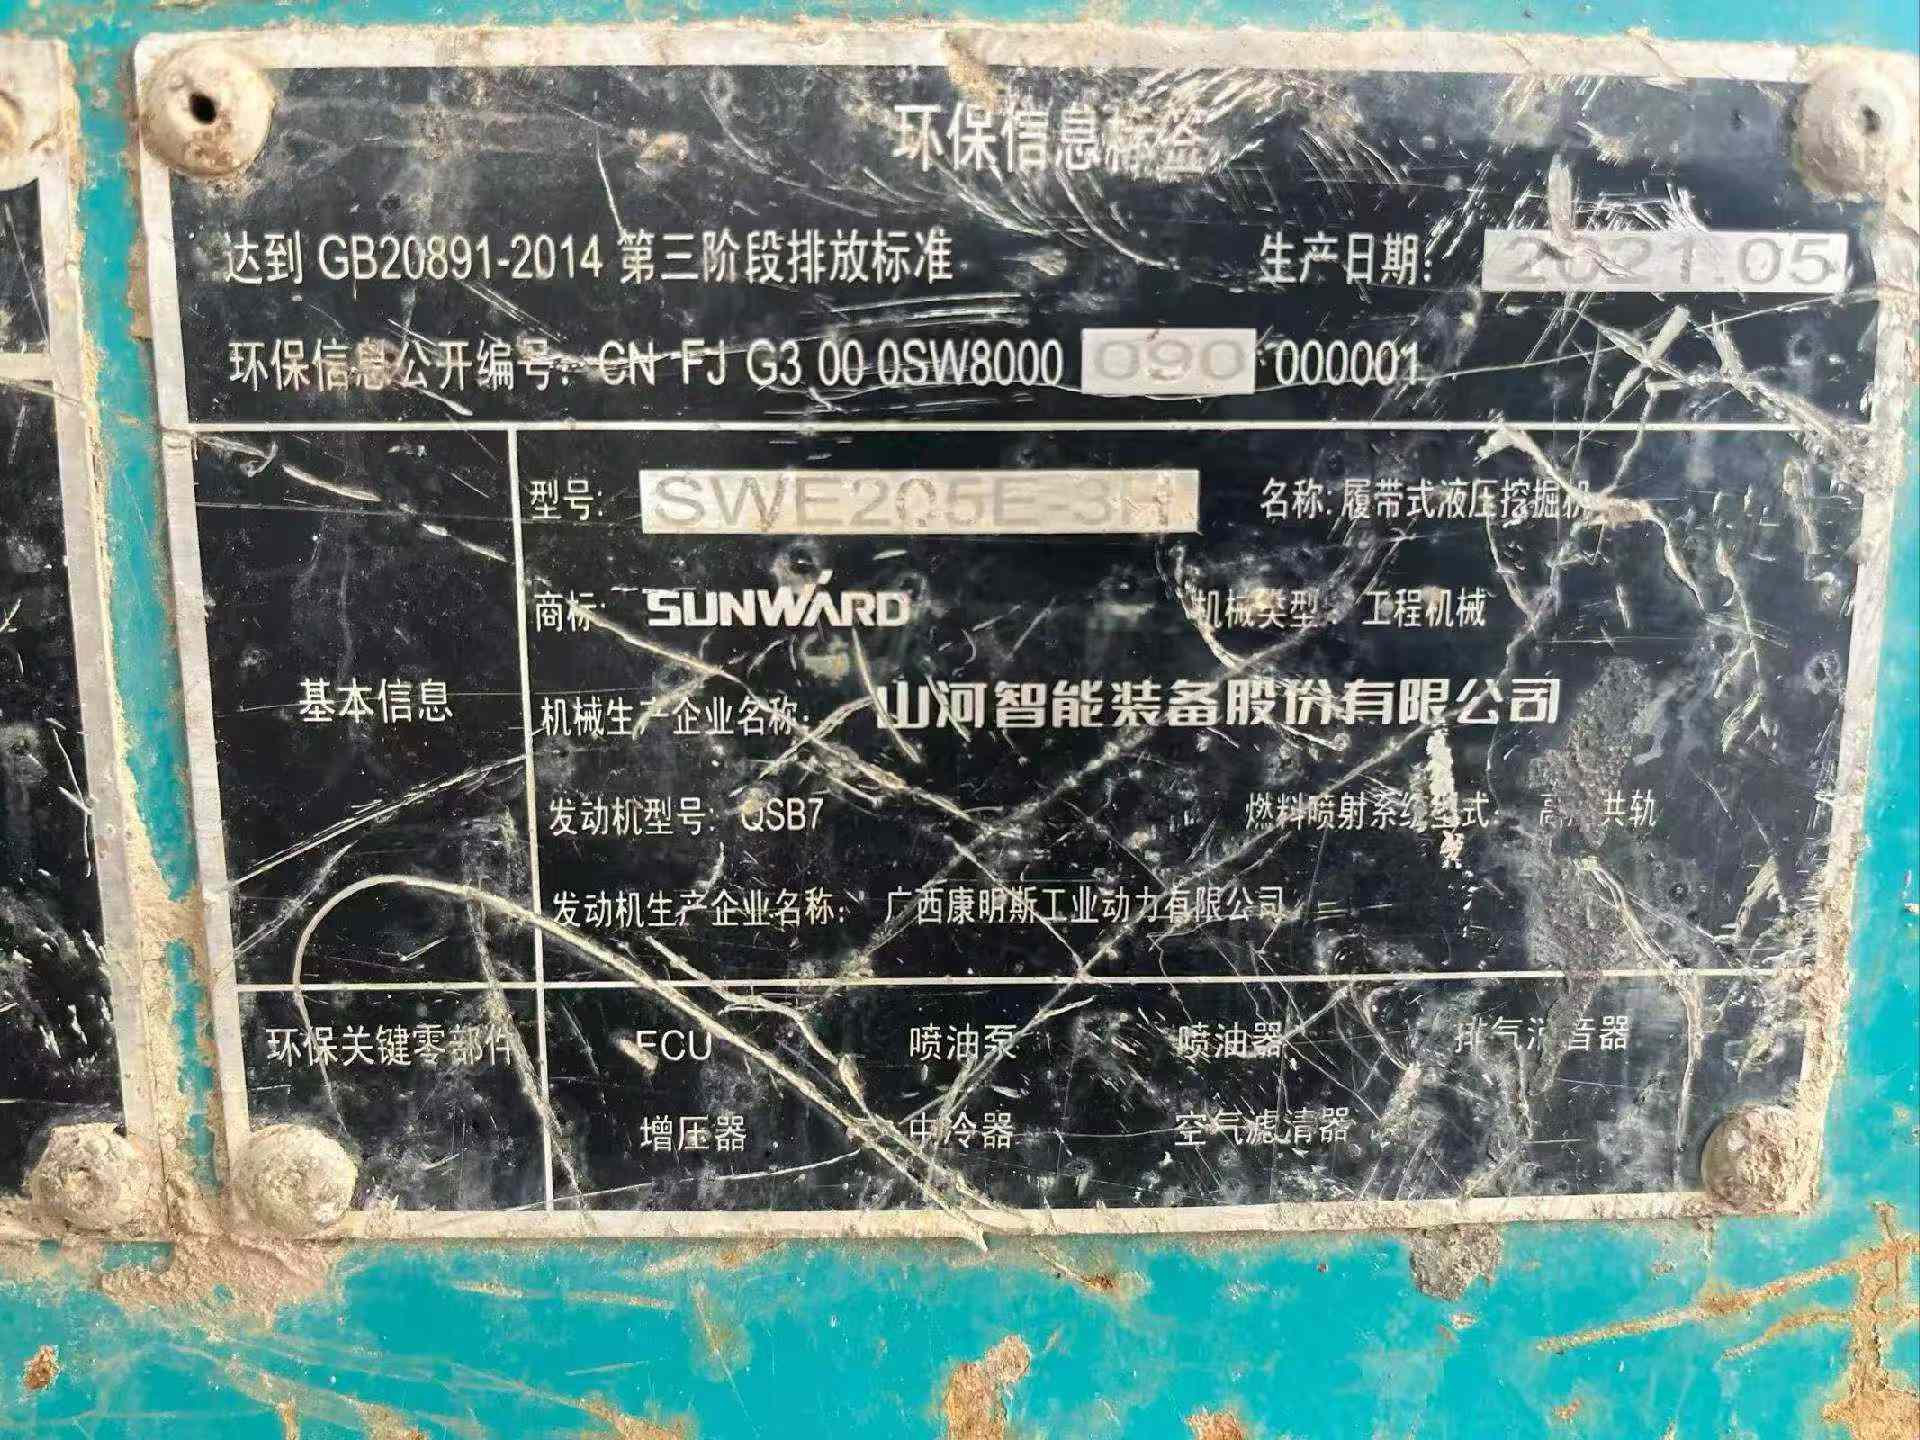 环保信息标签
达到 GB20891-2014 第三阶段排放标准 生产日期: 2021.05
环保信息公开编号: CN FJ G3 00 0SW8000 090 000001
型号: SWE205E-3H 名称: 履带式液压挖掘机
商标: SUNWARD 机械类型: 工程机械
基本信息
机械生产企业名称: 山河智能装备股份有限公司
发动机型号: QSB7 燃料喷射系统型式: 高压共轨
发动机生产企业名称: 广西康明斯工业动力有限公司
环保关键零部件 ECU 喷油泵 喷油器 排气消音器
增压器 中冷器 空气滤清器